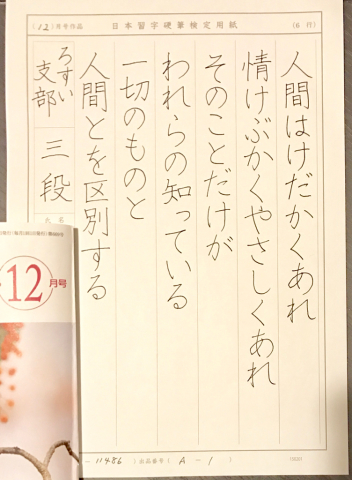 (12)月号作品 日本習字硬筆検定用紙 (6行)
人間はけだかくあれ
情けぶかくやさしくあれ
そのことだけが
われらの知っている
一切のものと
人間とを区別する
ろすい支部 三段
氏名
12月号
-11486 )出品番号( A-1 )